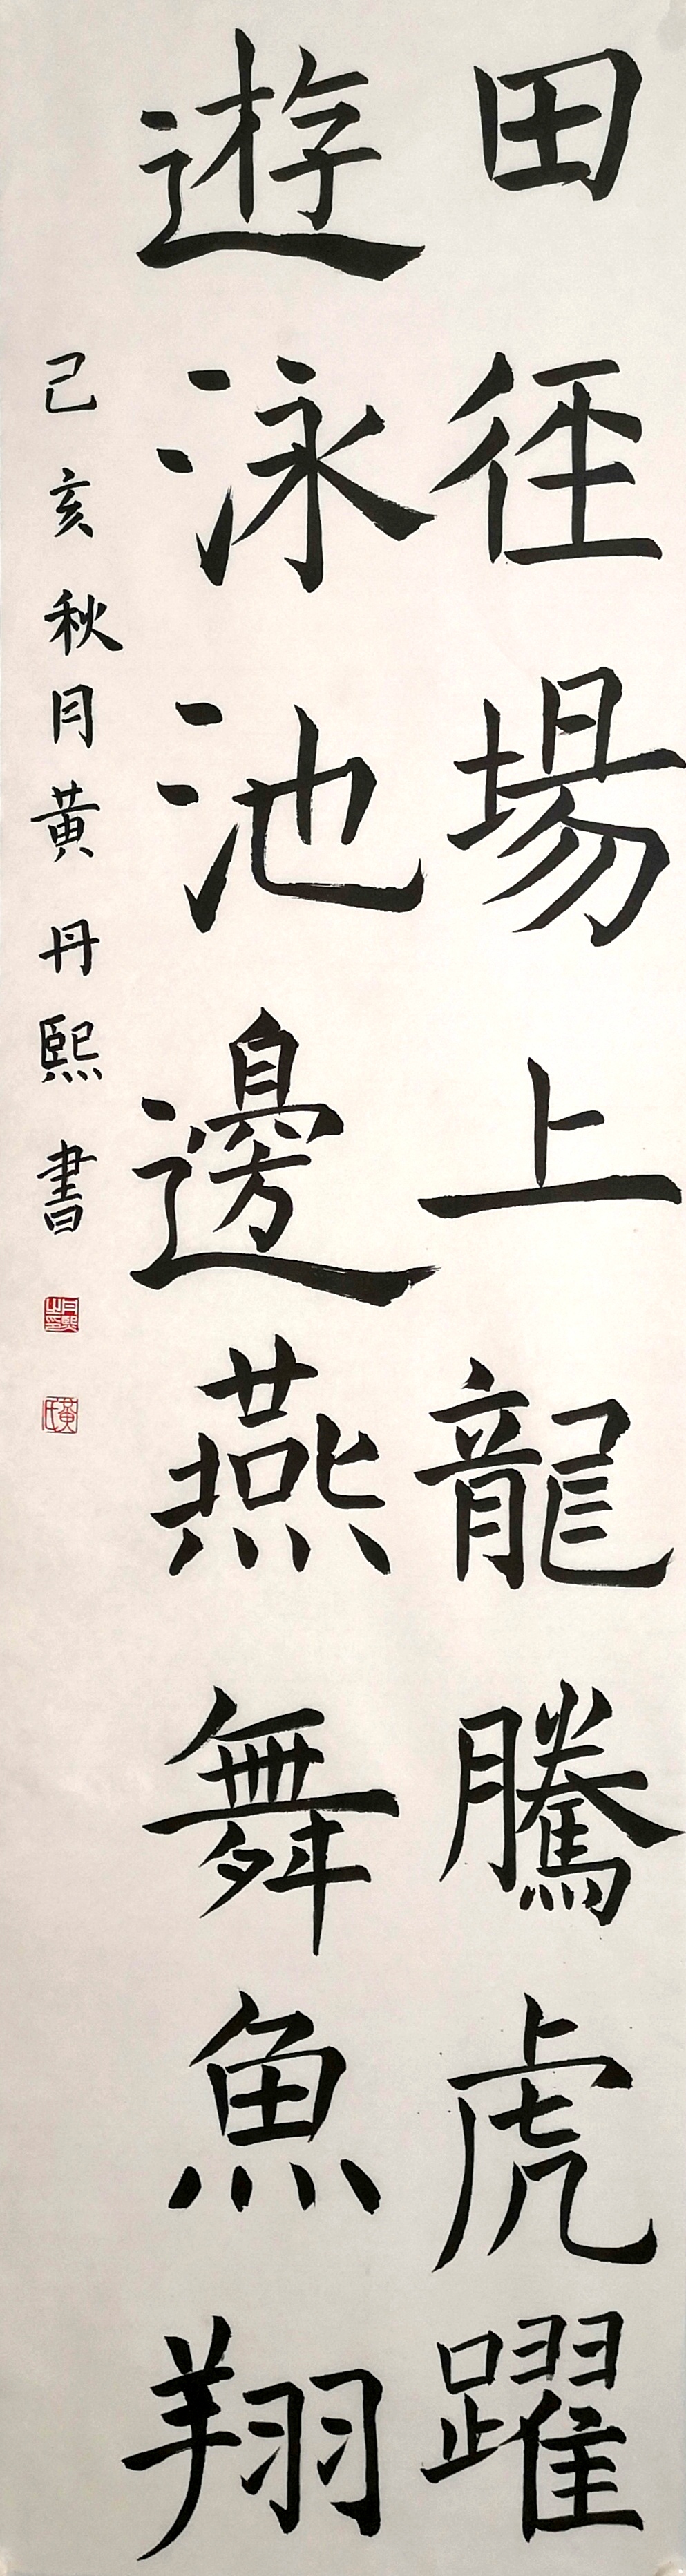 田徑場上龍騰虎躍
遊泳池邊燕舞魚翔
己亥秋月黃丹熙書
丹熙之印
黃氏